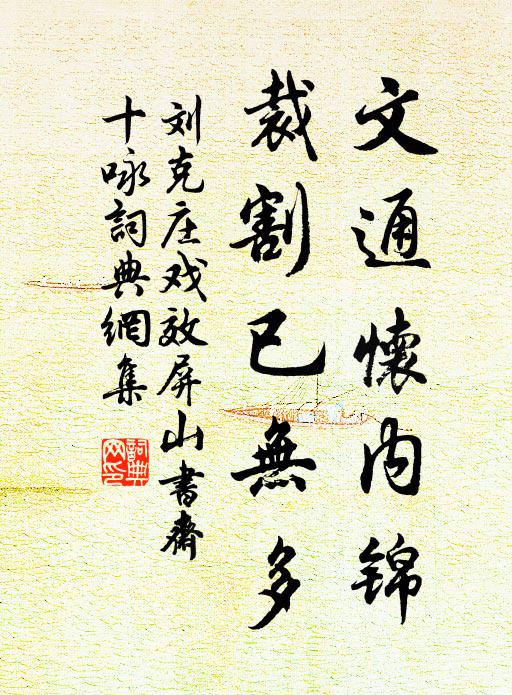 文通懷内锦
裁割已無多
刘克庄戏效屏山書齋
十咏詞典網集
詞典网印